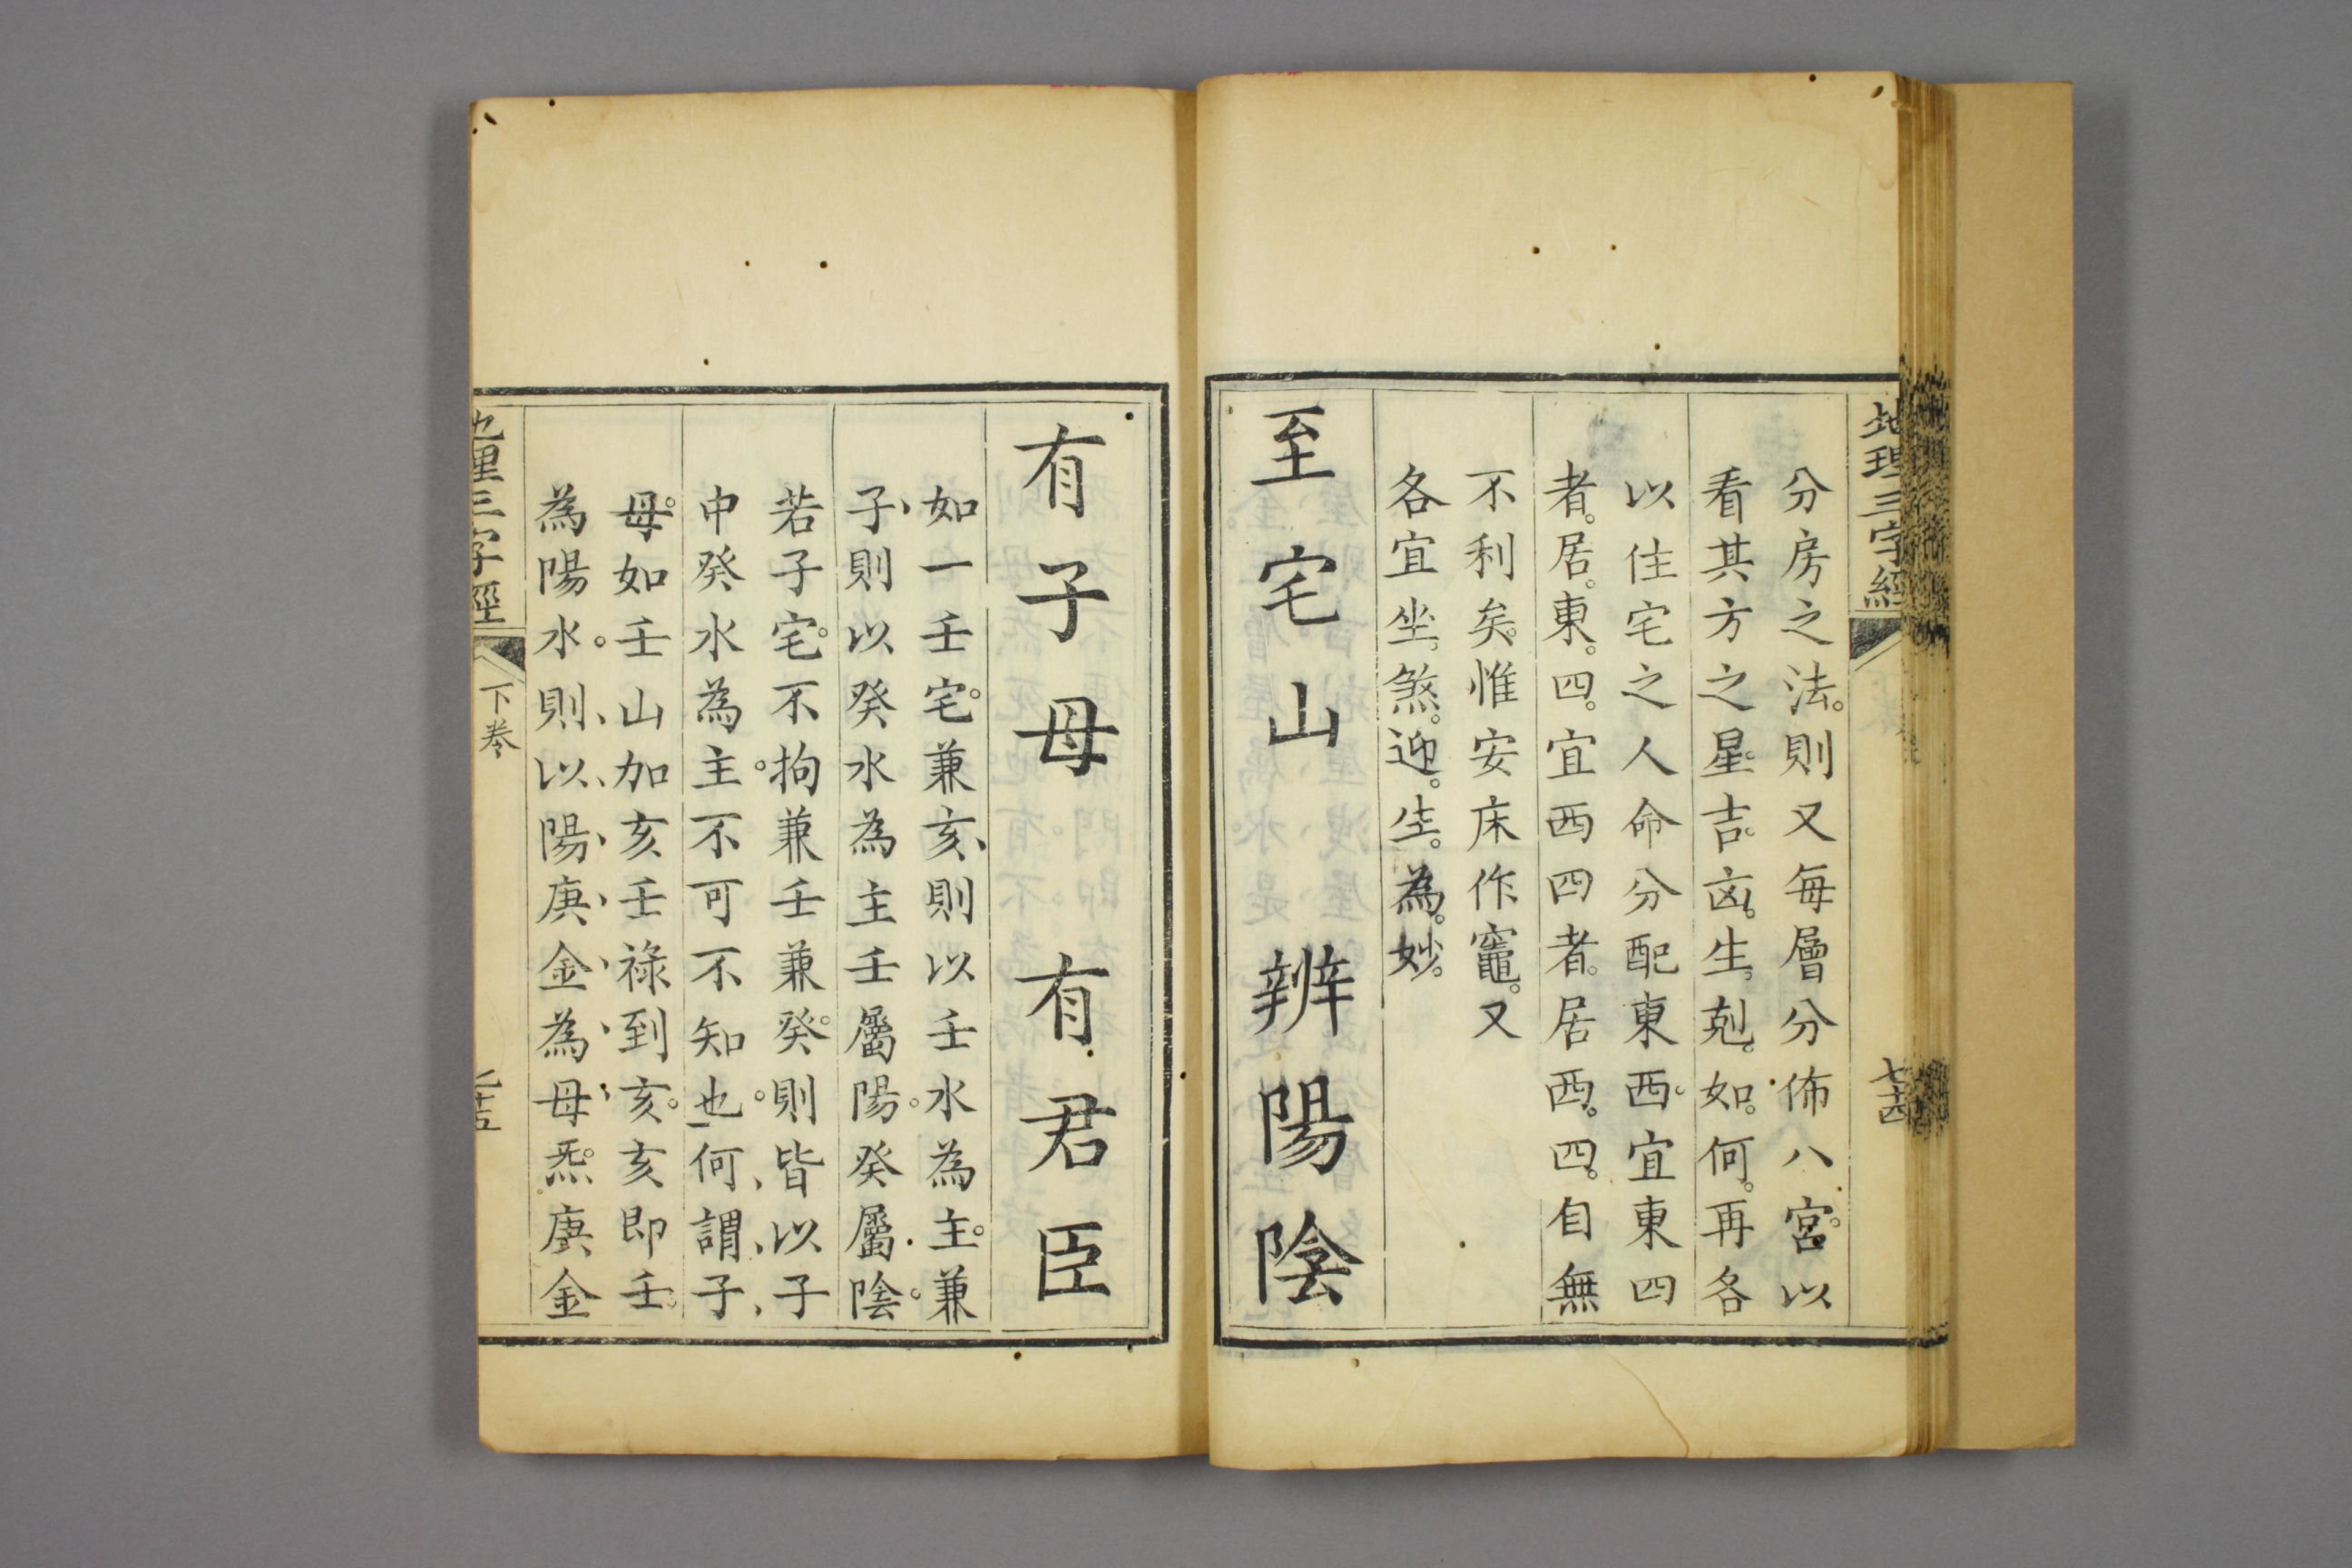 地理三字經
七十四
分房之法。則又每層分佈八宮。以
看其方之星。吉。凶。生。剋。如。何。再各
以住宅之人命分配東西。宜東四
者。居。東。四。宜西四者。居西。四。自無
不利矣。惟安床作竈。又
各宜坐。煞。迎。生。為。妙。
至宅山　辨陽陰
有子母　有君臣
如一壬宅。兼亥、則以壬水為主。兼
子、則以癸水為主壬屬陽。癸屬陰。
若子宅。不拘兼壬兼癸。則皆以子
中癸水為主。不可不知也。何、謂、子、
母。如壬山加亥壬祿到亥。亥即壬。
為陽水。則、以、陽、庚、金、為、母、炁。庚金
地理三字經
下卷
七十五